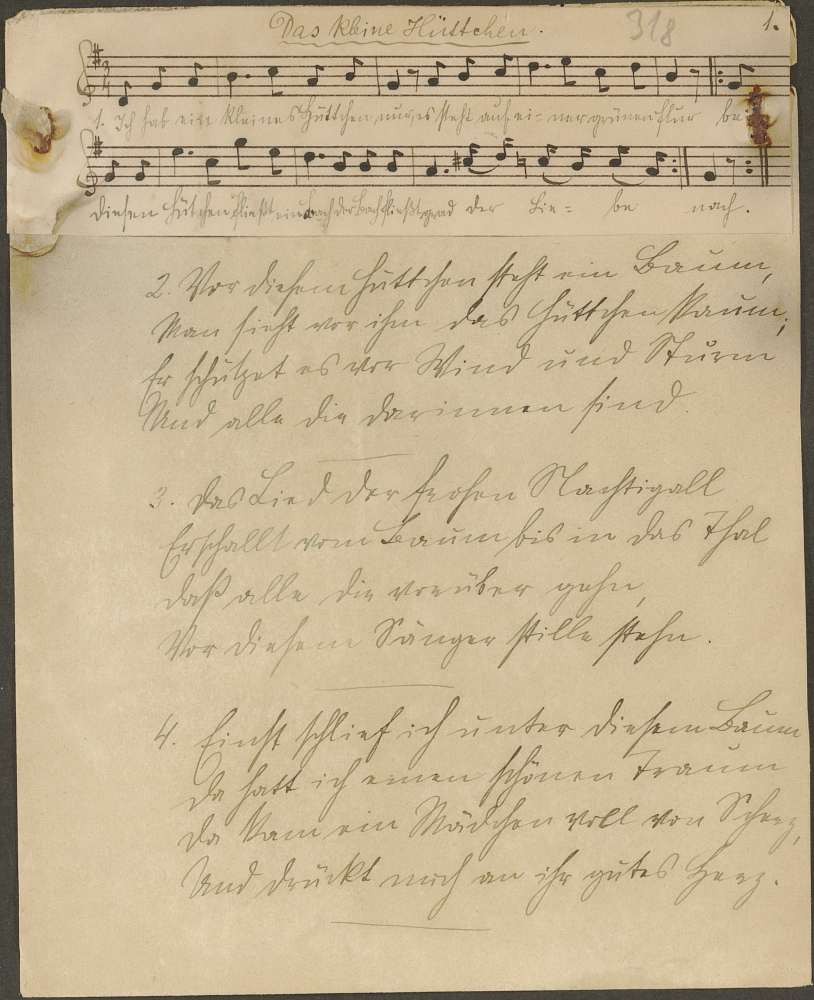 Das kleine Hüttchen.
318
1.
1. Ich hab ein kleines Hüttchen nur, es steht auf ei- ner grünen Flur bei
diesem Hüttchen fließt ein Bach der Bach fließt grad der Lie- be nach.
2. Vor diesem Hüttchen steht ein Baum,
Man sieht vor ihm das Hüttchen kaum;
Er schützet es vor Wind und Sturm
Und alle die darinnen sind.
3. Das Lied der frohen Nachtigall
Erschallt vom Baum bis in das Thal
Daß alle die vorüber gehn,
Vor diesem Sänger stille stehn.
4. Einst schlief ich unter diesem Baum
Da hatt ich einen schönen Traum
Da kam ein Mädchen voll von Scherz,
Und drückt mich an ihr gutes Herz.